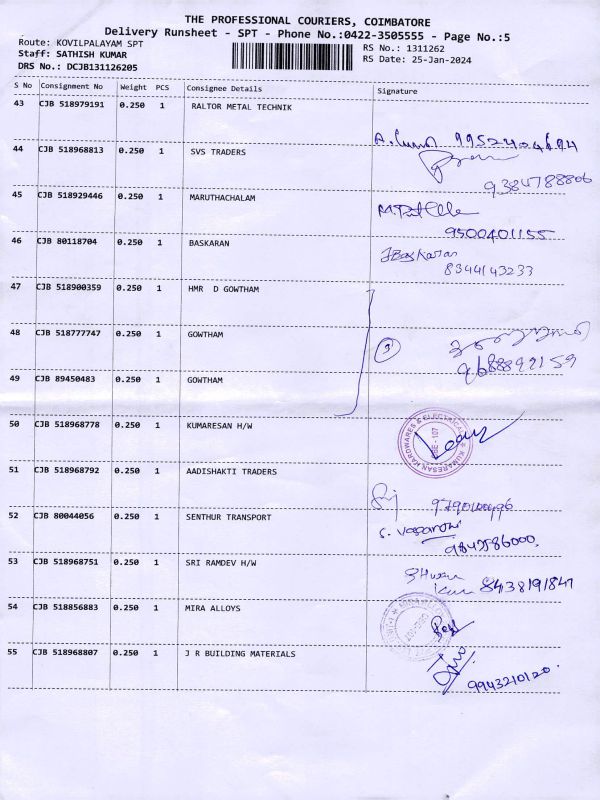 THE PROFESSIONAL COURIERS, COIMBATORE
Delivery Runsheet - SPT - Phone No.:0422-3505555 - Page No.:5
Route: KOVILPALAYAM SPT
RS No.: 1311262
Staff: SATHISH KUMAR
RS Date: 25-Jan-2024
DRS No.: DCJB131126205
S No Consignment No Weight PCS Consignee Details Signature
43 CJB 518979191 0.250 1 RALTOR METAL TECHNIK
44 CJB 518968813 0.250 1 SVS TRADERS
9384788806
45 CJB 518929446 0.250 1 MARUTHACHALAM
9500401155
46 CJB 80118704 0.250 1 BASKARAN
J Baskaran
8344143233
47 CJB 518900359 0.250 1 HMR D GOWTHAM
48 CJB 518777747 0.250 1 GOWTHAM
3
49 CJB 89450483 0.250 1 GOWTHAM
50 CJB 518968778 0.250 1 KUMARESAN H/W
KUMARESAN HARDWARES & ELECTRICALS
51 CJB 518968792 0.250 1 AADISHAKTI TRADERS
52 CJB 80044056 0.250 1 SENTHUR TRANSPORT
9842586000
53 CJB 518968751 0.250 1 SRI RAMDEV H/W
8438191841
54 CJB 518856883 0.250 1 MIRA ALLOYS
55 CJB 518968807 0.250 1 J R BUILDING MATERIALS
9943210120